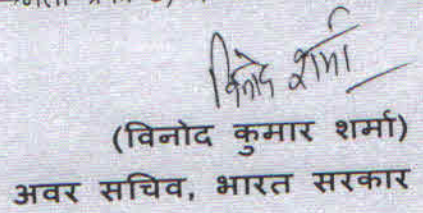 विनोद शर्मा
(विनोद कुमार शर्मा)
अवर सचिव, भारत सरकार